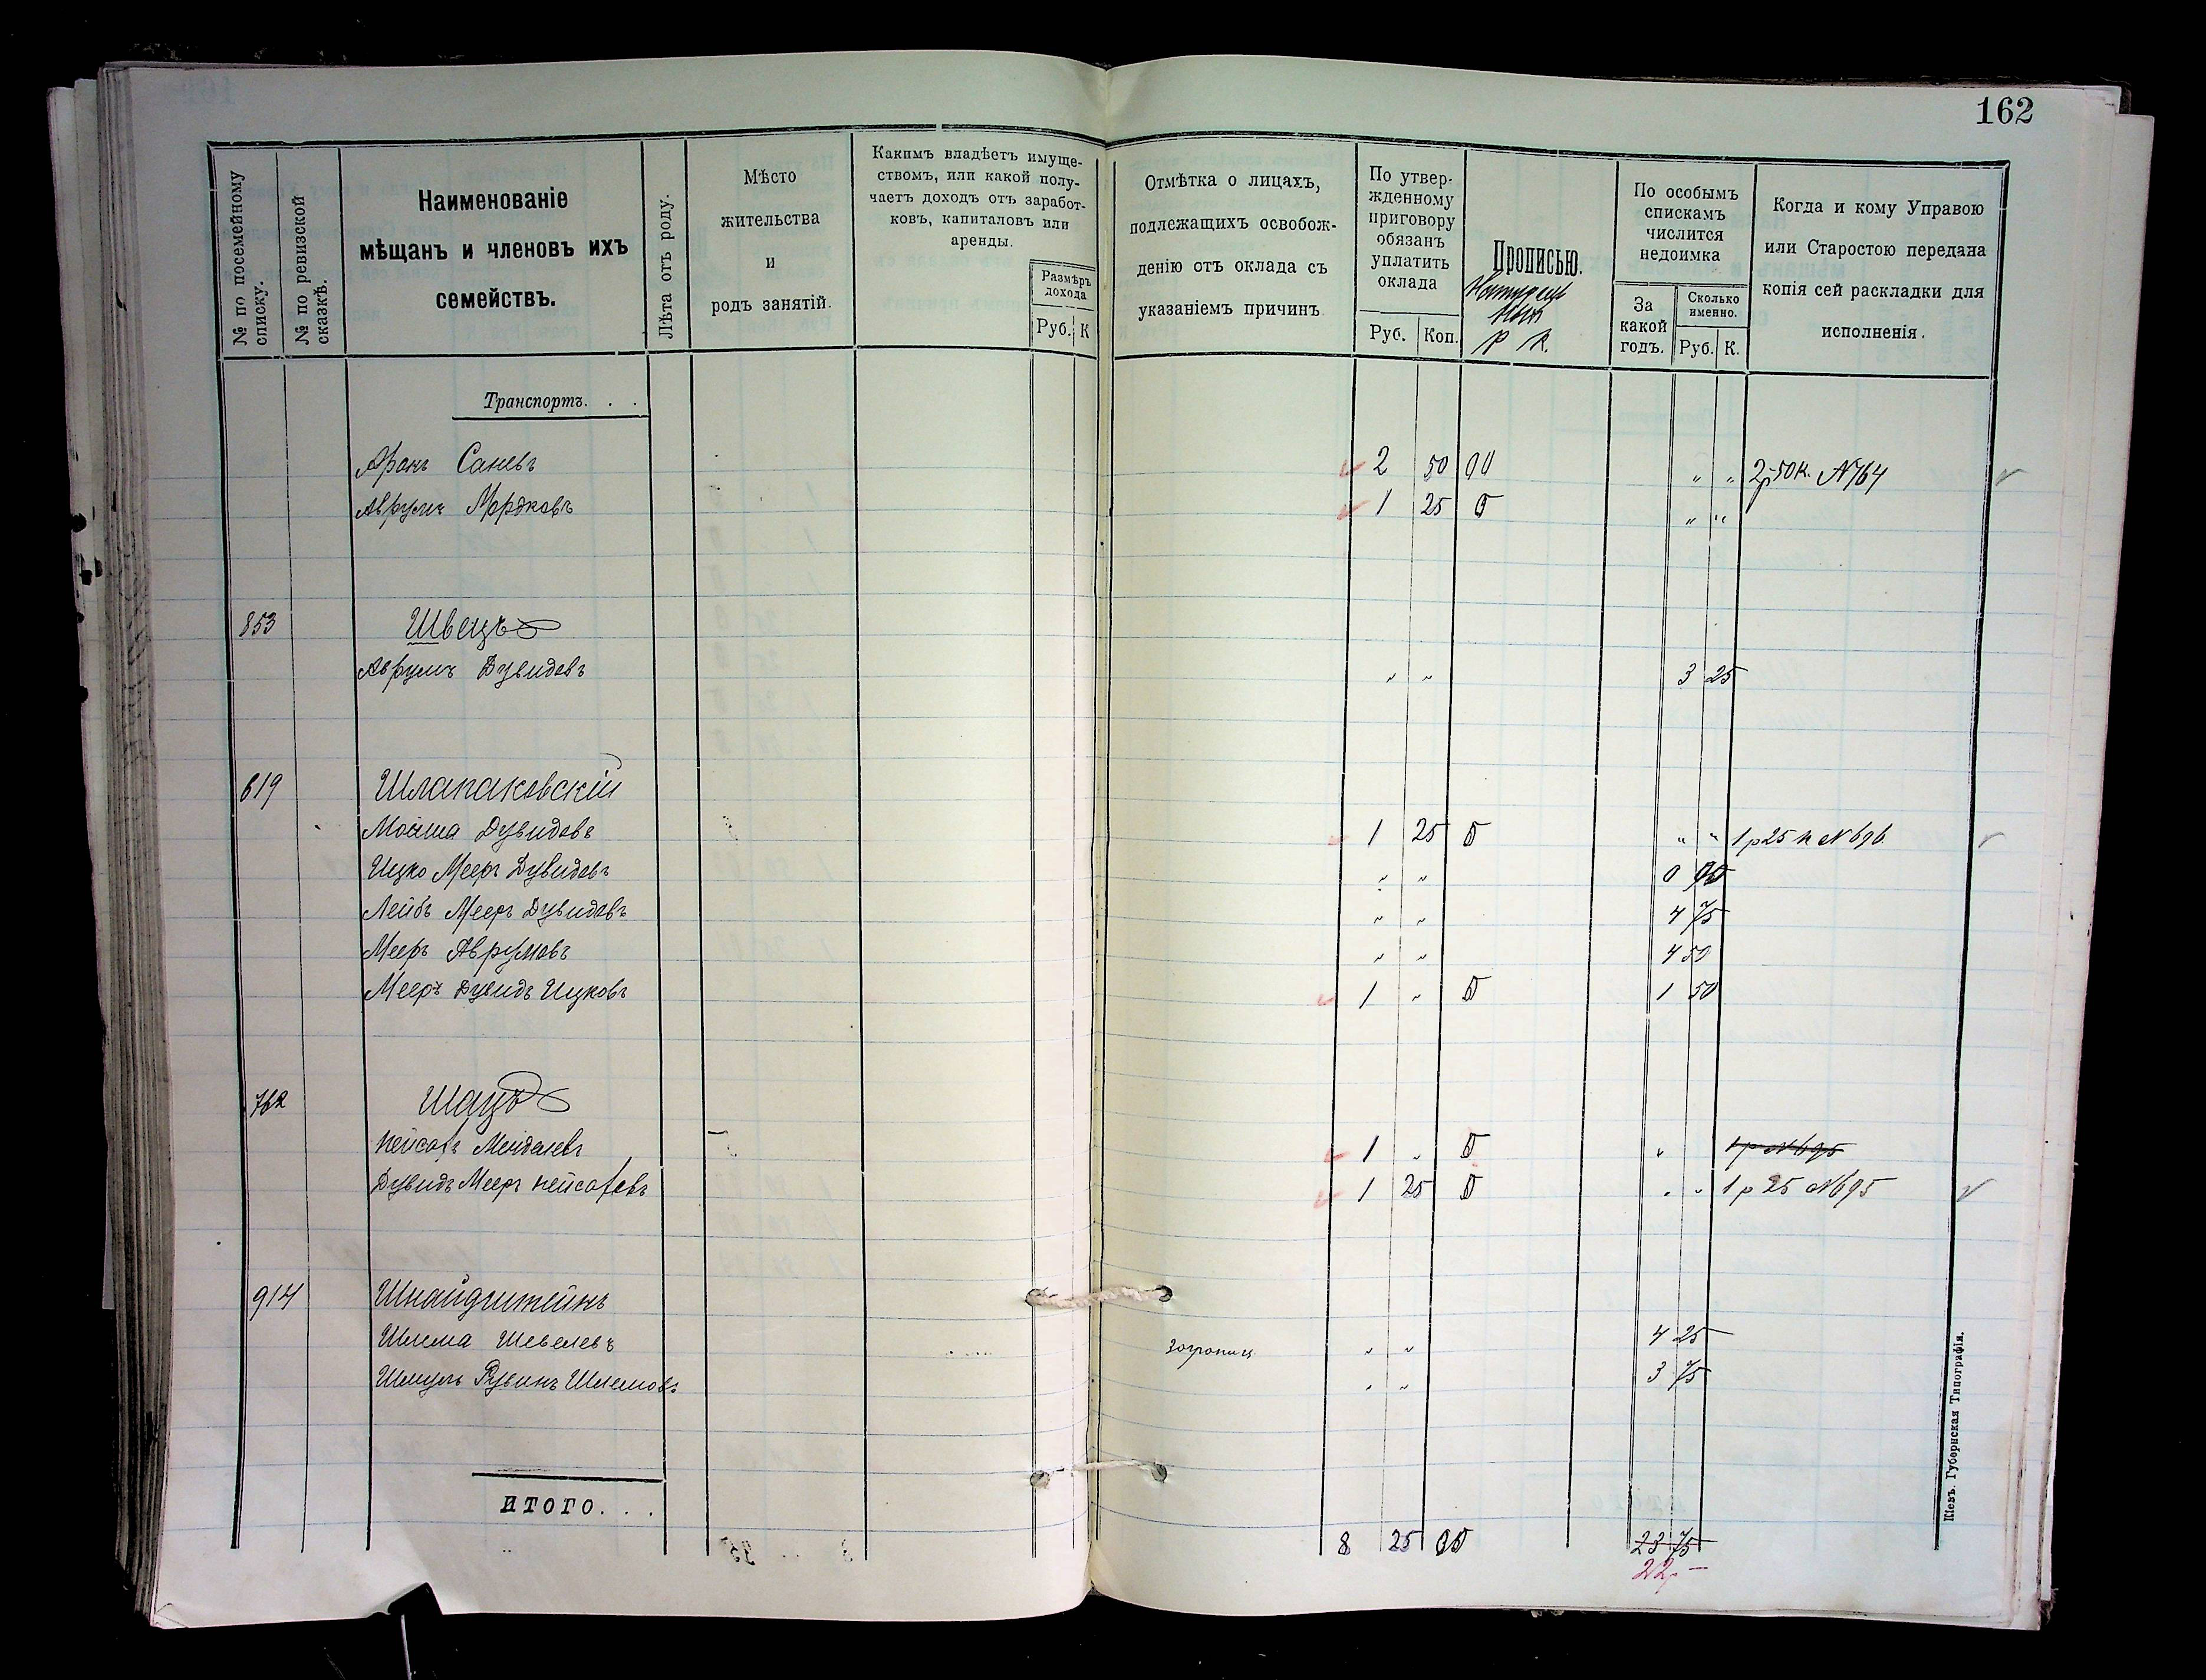 162
№ по посемейному списку.
№ по ревизской сказкѣ.
Наименованіе
мѣщанъ и членовъ ихъ
семействъ.
Лѣта отъ роду.
Мѣсто
жительства
и
родъ занятій.
Какимъ владѣетъ имуще-
ствомъ, или какой полу-
чаетъ доходъ отъ заработ-
ковъ, капиталовъ или
аренды.
Размѣръ
дохода
Руб. К
Отмѣтка о лицахъ,
подлежащихъ освобож-
денію отъ оклада съ
указаніемъ причинъ
По утвер-
жденному
приговору
обязанъ
уплатить
оклада
Руб. Коп.
Прописью.
Р К.
По особымъ
спискамъ
числится
недоимка
За
какой
годъ.
Сколько
именно.
Руб. К.
Когда и кому Управою
или Старостою передана
копія сей раскладки для
исполненія.
Транспортъ. . .
Аронъ Саневъ 2 50 " " 2р 50 к. №764
Аврумъ Мордковъ 1 25 " "
853 Швецъ
Аврумъ Дувидовъ " " 3 25
619 Шлапаковскій
Мойша Дувидовъ 1 25 " " 1р 25 к №696
Ицко Мееръ Дувидовъ " "
Лейбъ Мееръ Дувидовъ " " 4 75
Мееръ Аврумовъ " " 4 50
Мееръ Дувидъ Ицковъ 1 " 1 50
762 Шацъ
Нейсахъ Мендалевъ 1 " " 1р №695
Дувидъ Мееръ Нейсаховъ 1 25 " " 1р 25 №695
914 Шнайдштейнъ
Шлема Шевелевъ " " 4 25
Шмуль Рувинъ Шлемовъ " " 3 75
ИТОГО. . .
8 25 23 75
22р —
Кіевъ. Губернская Типографія.